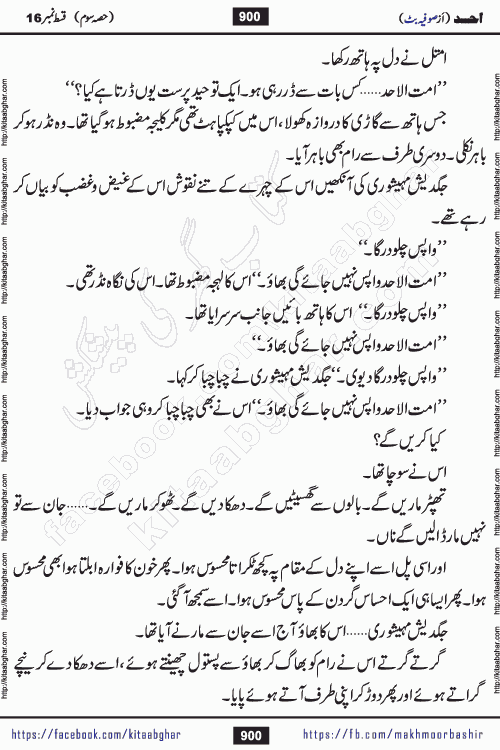 احد (از صوفیہ بٹ)
900
(حصہ سوم) قسط نمبر 16
امتل نے دل پہ ہاتھ رکھا۔
”امت الاحد......کس بات سے ڈر رہی ہو۔ ایک توحید پرست یوں ڈرتا ہے کیا؟“
جس ہاتھ سے گاڑی کا دروازہ کھولا، اس میں کپکپاہٹ تھی مگر کلیجہ مضبوط ہو گیا تھا۔ وہ نڈر ہو کر
باہر نکلی۔ دوسری طرف سے رام بھی باہر آیا۔
جگدیش مہیشوری کی آنکھیں اس کے چہرے کے تنے نقوش اس کے غیض و غضب کو بیاں کر
رہے تھے۔
”واپس چلو درگا۔“
”امت الاحد واپس نہیں جائے گی بھاؤ۔“ اس کا لہجہ مضبوط تھا۔ اس کی نگاہ نڈر تھی۔
”واپس چلو درگا۔“ اس کا ہاتھ بائیں جانب سرسرایا تھا۔
”امت الاحد واپس نہیں جائے گی بھاؤ۔“
”واپس چلو درگا دیوی۔“ جگدیش مہیشوری نے چبا چبا کر کہا۔
”امت الاحد واپس نہیں جائے گی بھاؤ۔“ اس نے بھی چبا چبا کر وہی جواب دیا۔
کیا کریں گے؟
اس نے سوچا تھا۔
تھپڑ ماریں گے۔ بالوں سے گھسیٹیں گے۔ دھکا دیں گے۔ ٹھوکر ماریں گے۔......جان سے تو
نہیں مار ڈالیں گے ناں۔
اور اسی پل اسے اپنے دل کے مقام پہ کچھ ٹکراتا محسوس ہوا۔ پھر خون کا فوارہ ابلتا ہوا بھی محسوس
ہوا۔ پھر ایسا ہی ایک احساس گردن کے پاس محسوس ہوا۔ اسے سمجھ آ گئی۔
جگدیش مہیشوری......اس کا بھاؤ آج اسے جان سے مارنے آیا تھا۔
گرتے گرتے اس نے رام کو بھاگ کر بھاؤ سے پستول چھینتے ہوئے، اسے دھکا دے کر نیچے
گراتے ہوئے اور پھر دوڑ کر اپنی طرف آتے ہوئے پایا۔
http://kitaabghar.com
کتاب گھر کی پیشکش
facebook.com/kitaabghar
kitaabghar.com
https://facebook.com/kitaabghar
900
https://fb.com/makhmoorbashir